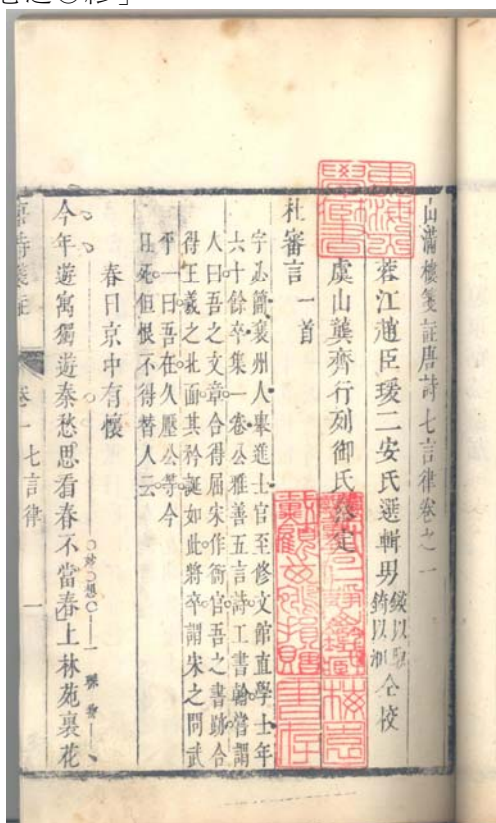 山滿樓箋註唐詩七言律卷之一
蓉江趙臣瑗二安氏選輯男
錡以
仝校
虞山龔齊行列御氏
定
杜審言一首
字必簡襄州人舉進士官至修文館直學士年
六十餘卒集一卷公雅善五言詩工書翰嘗謂
人曰吾之文章合得屈宋作衙官吾之書跡合
得王羲之北面其矜誕如此將卒謂宋之問武
平一曰吾在久壓公等今
且死但恨不得替人云
春日京中有懷
今年遊寓獨遊秦愁思看春不當春上林苑裏花
妙想
唐詩箋註
卷一
七言律
一